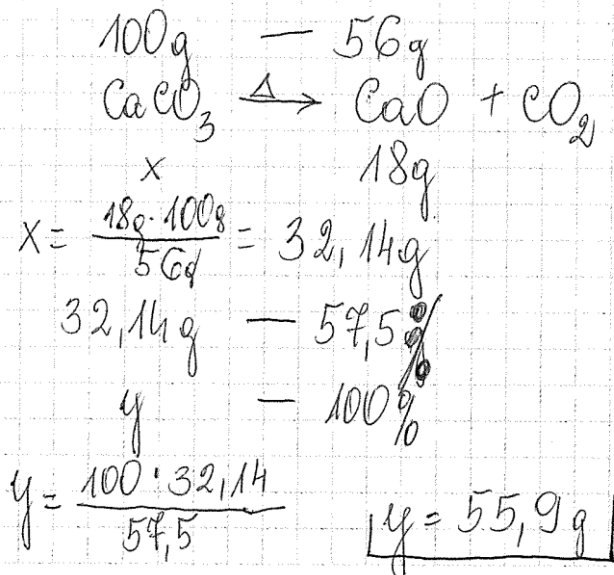 100g — 56g
CaCO₃ —Δ→ CaO + CO₂
x 18g
x = 18g·100g / 56g = 32,14g
32,14g — 57,5%
y — 100%
y = 100·32,14 / 57,5
y = 55,9g